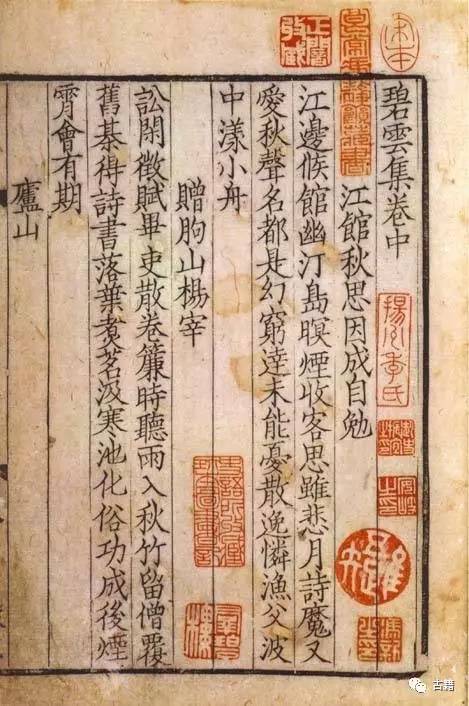 碧雲集卷中
江館秋思因成自勉
江邊候館幽汀島暝煙收客思雖悲月詩魔又
愛秋聲名都是幻窮達未能憂散逸憐漁父波
中漾小舟
贈朐山楊宰
訟閑徵賦畢吏散卷簾時聽雨入秋竹留僧覆
舊棊得詩書落葉煑茗汲寒池化俗功成後煙
霄會有期
廬山
宋本
揚州季氏
古籍